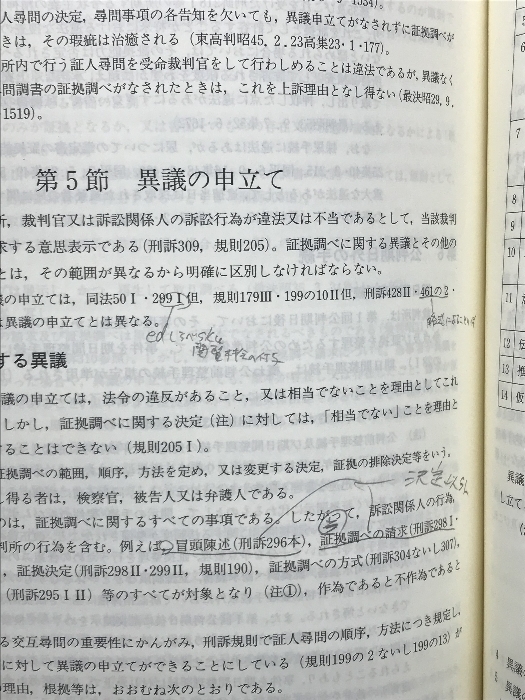 人尋問の決定，尋問事項の各告知を欠いても，異議申立てがなされずに証拠調べが
きは，その瑕疵は治癒される（東高判昭45．2．23高集23・1・177）。
所内で行う証人尋問を受命裁判官をして行わしめることは違法であるが，異議なく
問調書の証拠調べがなされたときは，これを上訴理由となし得ない（最決昭29．9．
1519）。
第5節　異議の申立て
所，裁判官又は訴訟関係人の訴訟行為が違法又は不当であるとして，当該裁判
求する意思表示である（刑訴309，規則205）。証拠調べに関する異議とその他の
とは，その範囲が異なるから明確に区別しなければならない。
の申立ては，同法50Ⅰ・299Ⅰ但，規則179Ⅲ・199の10Ⅱ但，刑訴428Ⅱ・461の2・
は異議の申立てとは異なる。
する異議
議の申立ては，法令の違反があること，又は相当でないことを理由としてこれ
しかし，証拠調べに関する決定（注）に対しては，「相当でない」ことを理由と
ることはできない（規則205Ⅰ）。
証拠調べの範囲，順序，方法を定め，又は変更する決定，証拠の排除決定等をいう。
し得る者は，検察官，被告人又は弁護人である。
決定
のは，証拠調べに関するすべての事項である。したがって，訴訟関係人の行為，
判所の行為を含む。例えば，冒頭陳述（刑訴296本），証拠調べの請求（刑訴298Ⅰ・
，証拠決定（刑訴298Ⅱ・299Ⅱ，規則190），証拠調べの方式（刑訴304ないし307），
（刑訴295ⅠⅡ）等のすべてが対象となり（注①），作為であると不作為であると
る交互尋問の重要性にかんがみ，刑訴規則で証人尋問の順序，方法につき規定し，
に対して異議の申立てができることにしている（規則199の2ないし199の13）が
理由，根拠等は，おおむね次のとおりである。
7
8
9
10
11
12
13
14
異議
立て，
4 異議
5 異議